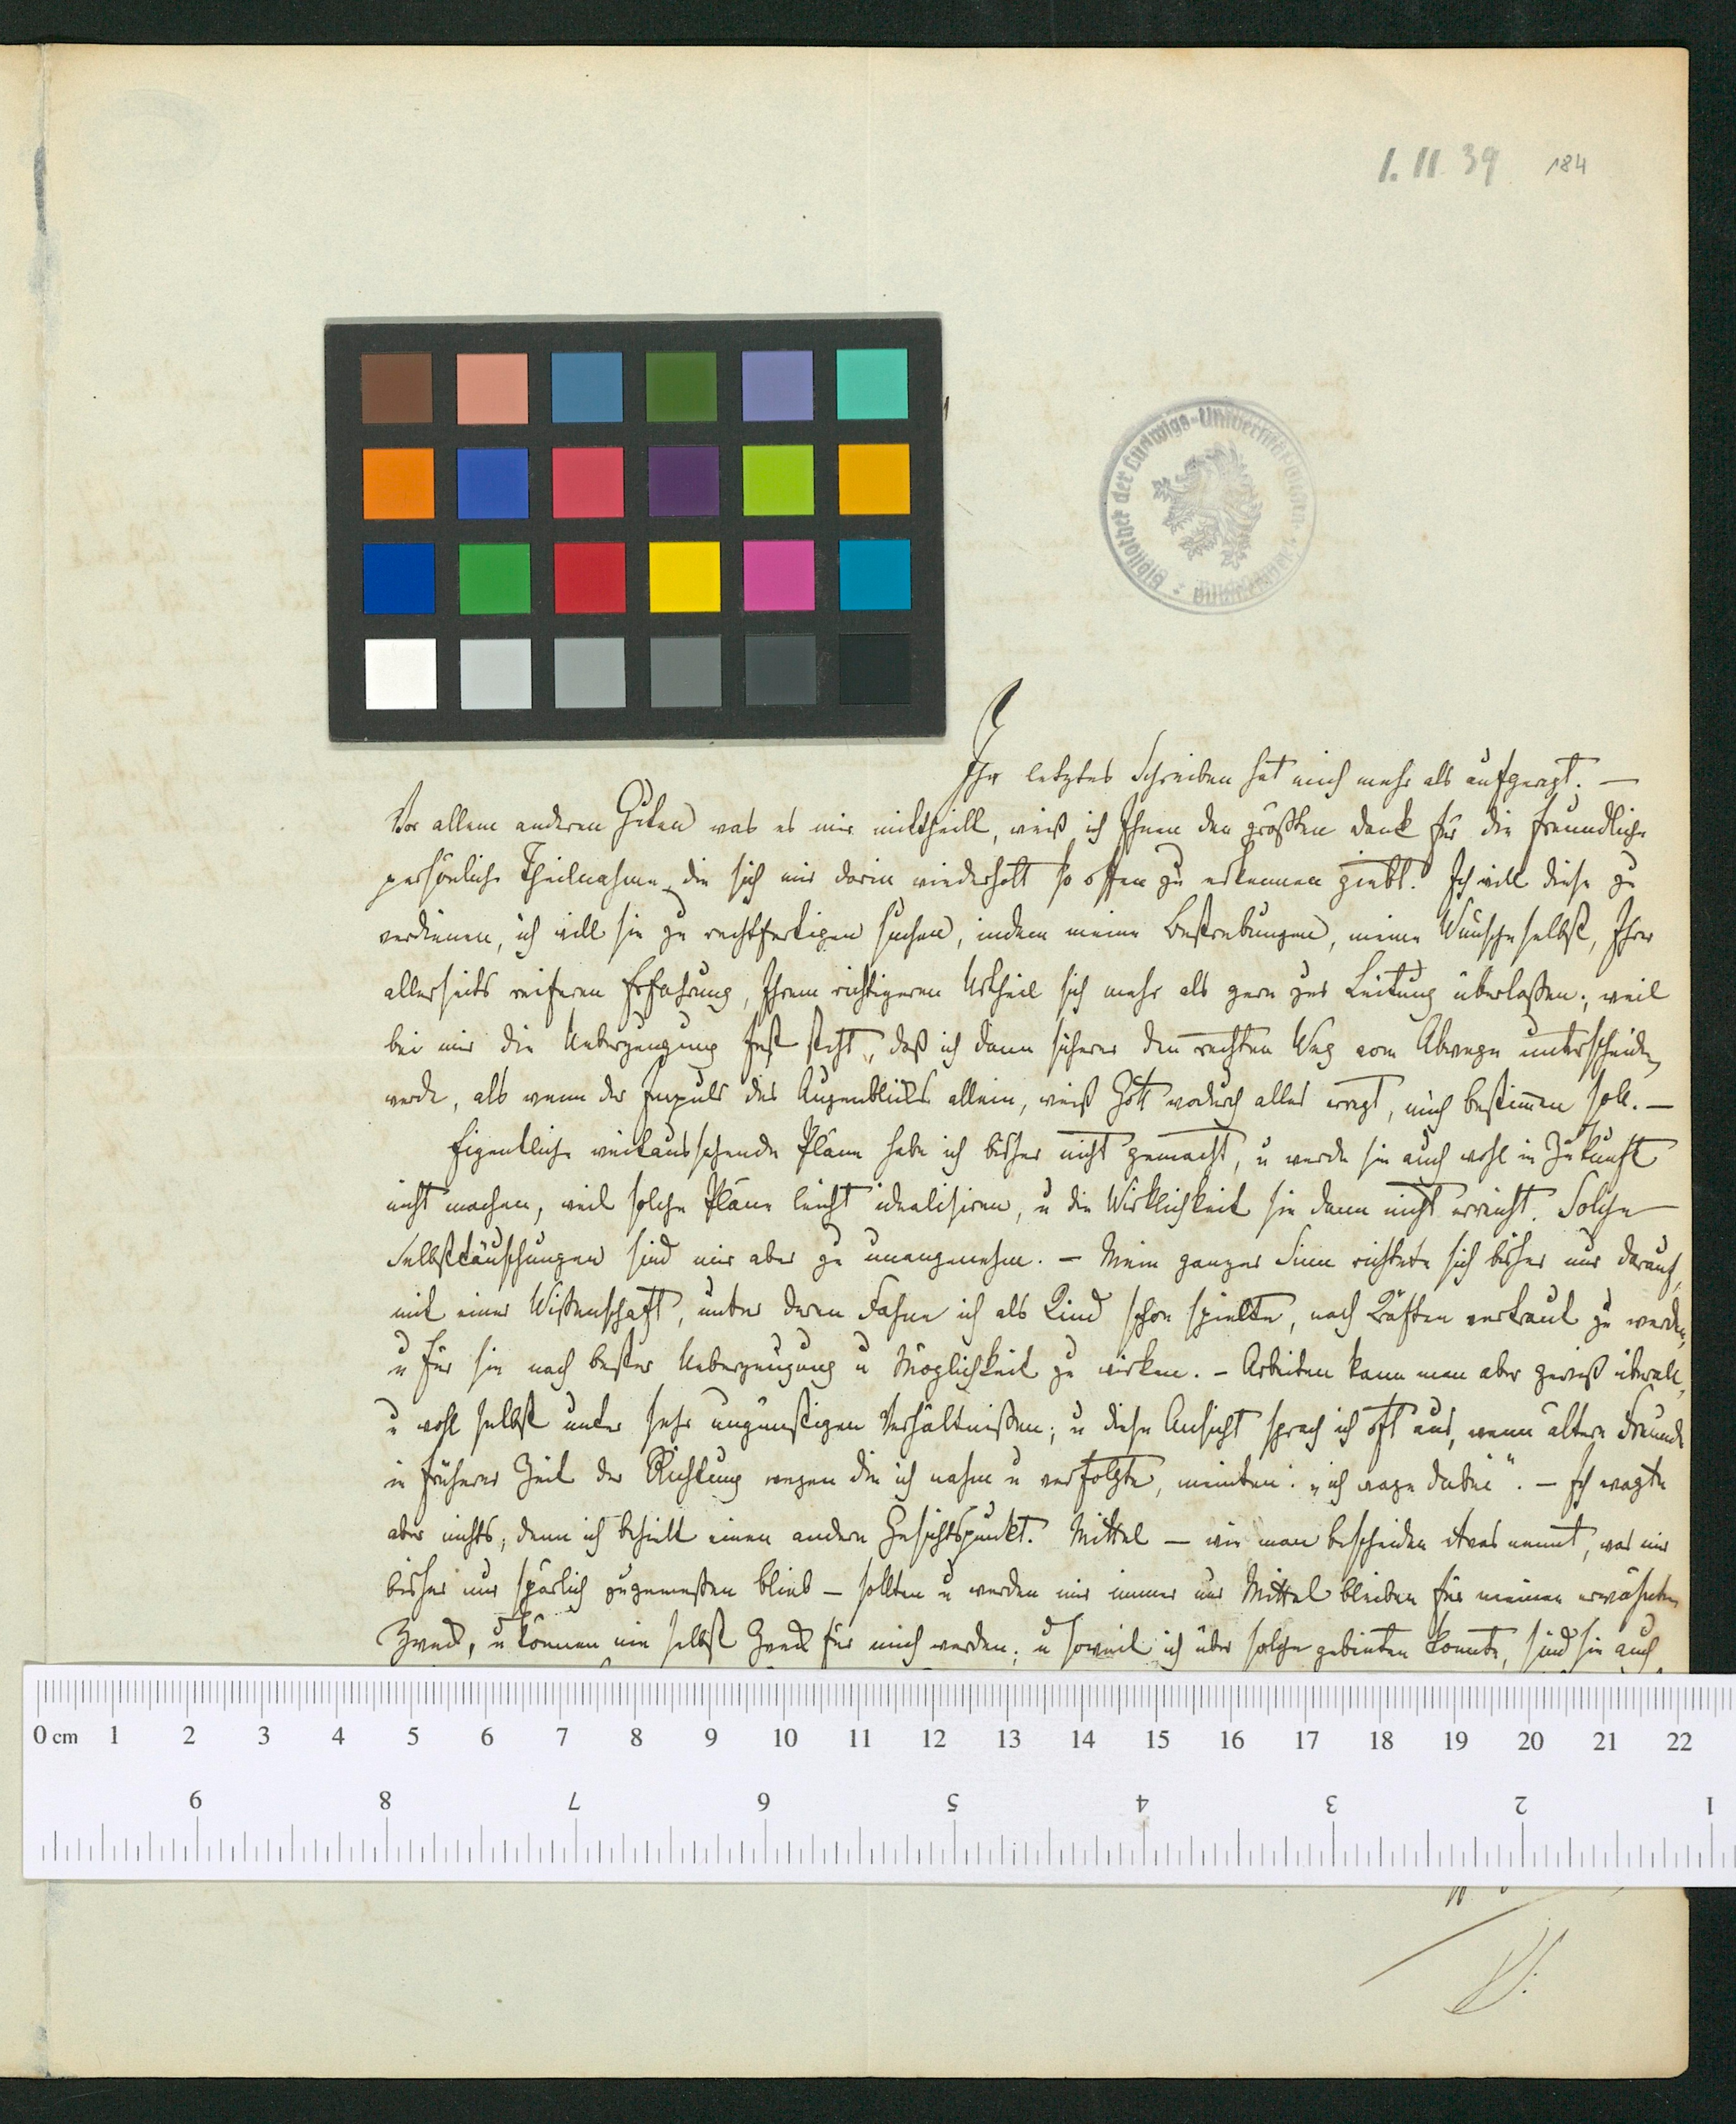 1. 11. 39 184
Bibliothek der Ludwigs-Universität
Ihr letztes Schreiben hat mich mehr als aufgeregt. —
Vor allem anderen Guten was es mir mittheilt, weiß ich Ihnen den größten Dank für die freundliche
persönliche Theilnahme, die sich mir darin wiederholt so offen zu erkennen giebt. Ich will diese zu
verdienen, ich will sie zu rechtfertigen suchen, indem meine Bestrebungen, meine Wünsche selbst, Ihrer
allerseits reiferen Erfahrung, Ihrem richtigeren Urtheil sich mehr als gern zur Leitung überlaßen; weil
bei mir die Ueberzeugung fest steht, daß ich dann sicherer den rechten Weg vom Abwege unterscheiden
werde, als wenn der Impuls des Augenblicks allein, weiß Gott wodurch alles erregt, mich bestimmen soll. —
Eigentliche weitaussehende Pläne habe ich bisher nicht gemacht, u werde sie auch wohl in Zukunft
nicht machen, weil solche Pläne leicht idealisiren, u die Wirklichkeit sie dann nicht erreicht. Solche
Selbsttäuschungen sind mir aber zu unangenehm. — Mein ganzer Sinn richtete sich bisher nur darauf,
mit einer Wißenschaft, unter deren Fahne ich als Kind schon spielte, nach Kräften vertraut zu werden,
u für sie nach bester Ueberzeugung u Möglichkeit zu wirken. — Arbeiten kann man aber gewiß überall,
u wohl selbst unter sehr ungünstigen Verhältnißen; u diese Ansicht sprach ich oft aus, wenn ältere Freunde
in früherer Zeit der Richtung wegen die ich nahm u verfolgte, meinten: „ich wage dabei“. — Ich wagte
aber nichts, denn ich behielt einen andern Gesichtspunkt. Mittel — wie man bescheiden etwas nennt, was mir
bisher nur spärlich zugemeßen blieb — sollten u werden mir immer nur Mittel bleiben für meinen erwähnten
Zweck, u können nie selbst Zweck für mich werden; u soweit ich über solche gebieten konnte, sind sie auch
0 cm 1 2 3 4 5 6 7 8 9 10 11 12 13 14 15 16 17 18 19 20 21 22
9 8 7 6 5 4 3 2 1